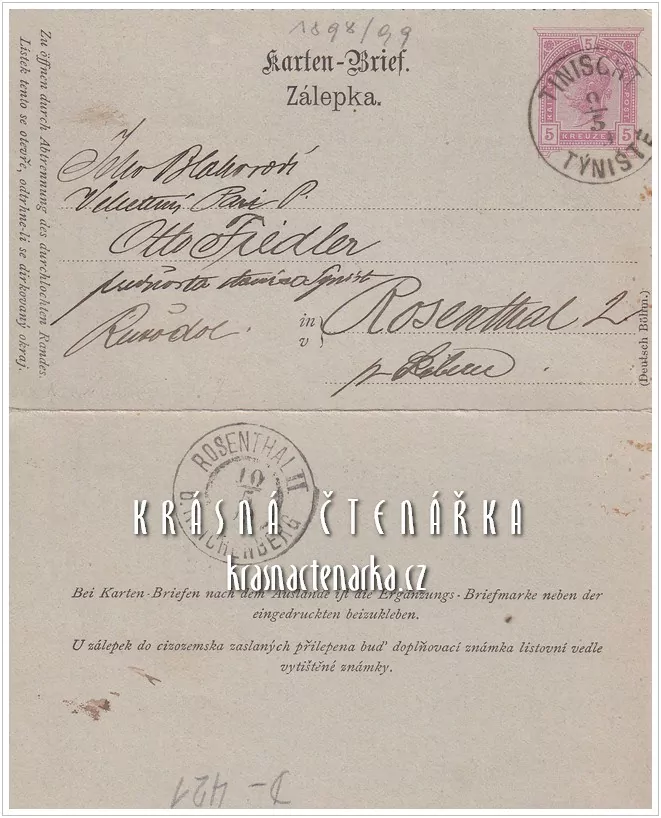 1898/99
Karten-Brief.
Zálepka.
5
KREUZER
5 5
TINISCHT
9/5
TÝNIŠTĚ
Zu öffnen durch Abtrennung des durchlochten Randes.
Lístek tento se otevře, odtrhne-li se dírkovaný okraj.
Otto Fiedler
in
v
Rosenthal 2
(Deutsch Böhm.)
ROSENTHAL II
10
B. REICHENBERG
KRÁSNÁ ČTENÁŘKA
krasnactenarka.cz
Bei Karten-Briefen nach dem Auslande ist die Ergänzungs-Briefmarke neben der
eingedruckten beizukleben.
U zálepek do cizozemska zaslaných přilepena buď doplňovací známka listovní vedle
vytištěné známky.
D-421